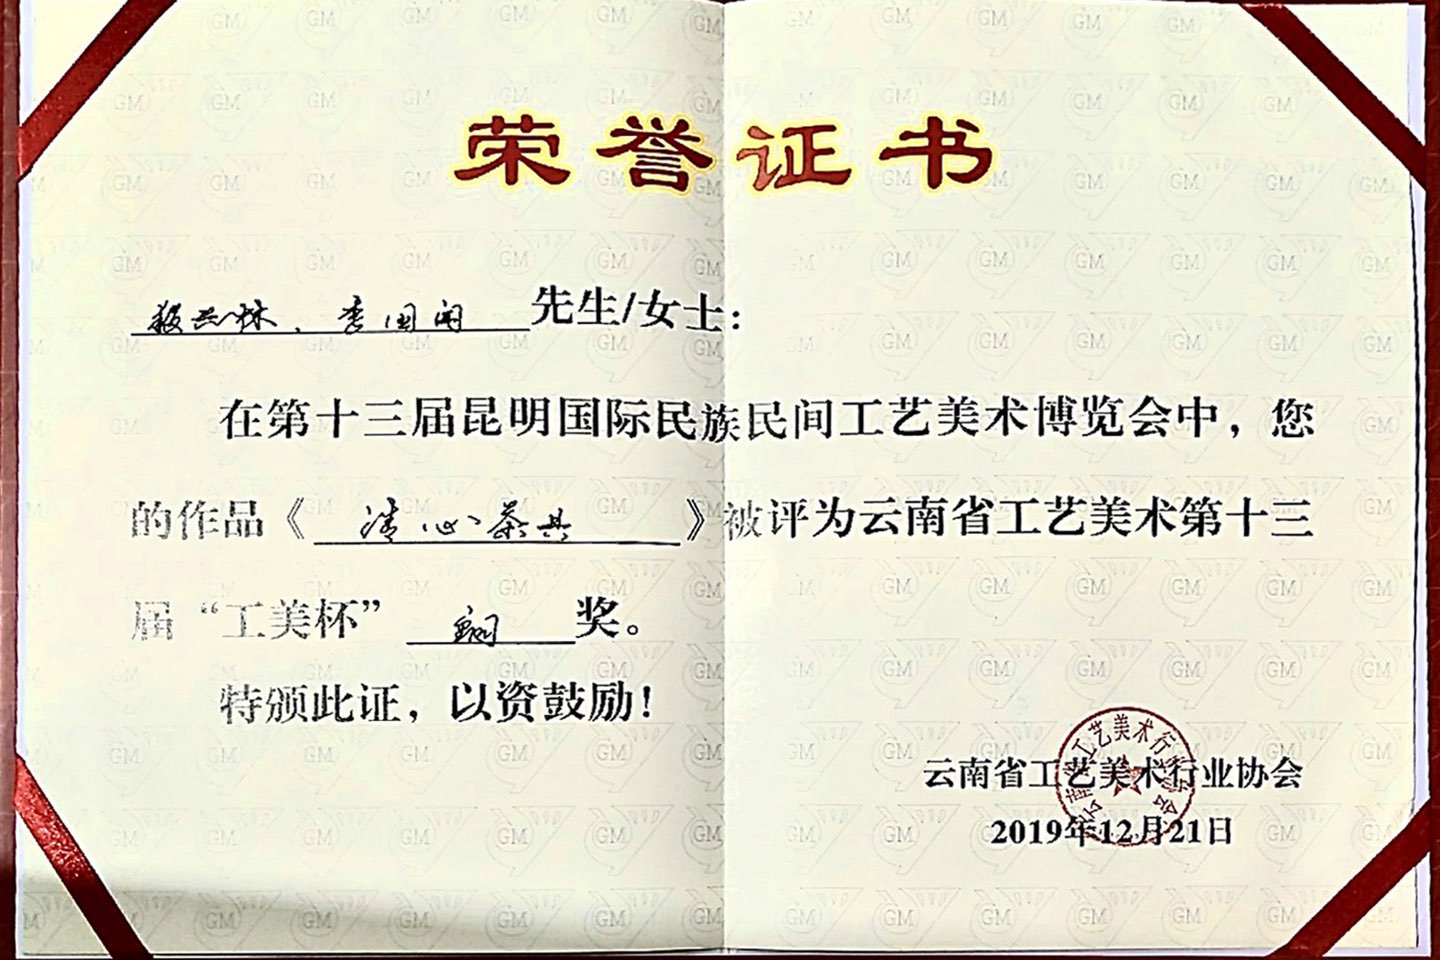 荣誉证书
先生/女士：
在第十三届昆明国际民族民间工艺美术博览会中，您
的作品《 清心茶具 》被评为云南省工艺美术第十三
届“工美杯” 铜 奖。
特颁此证，以资鼓励！
云南省工艺美术行业协会
2019年12月21日